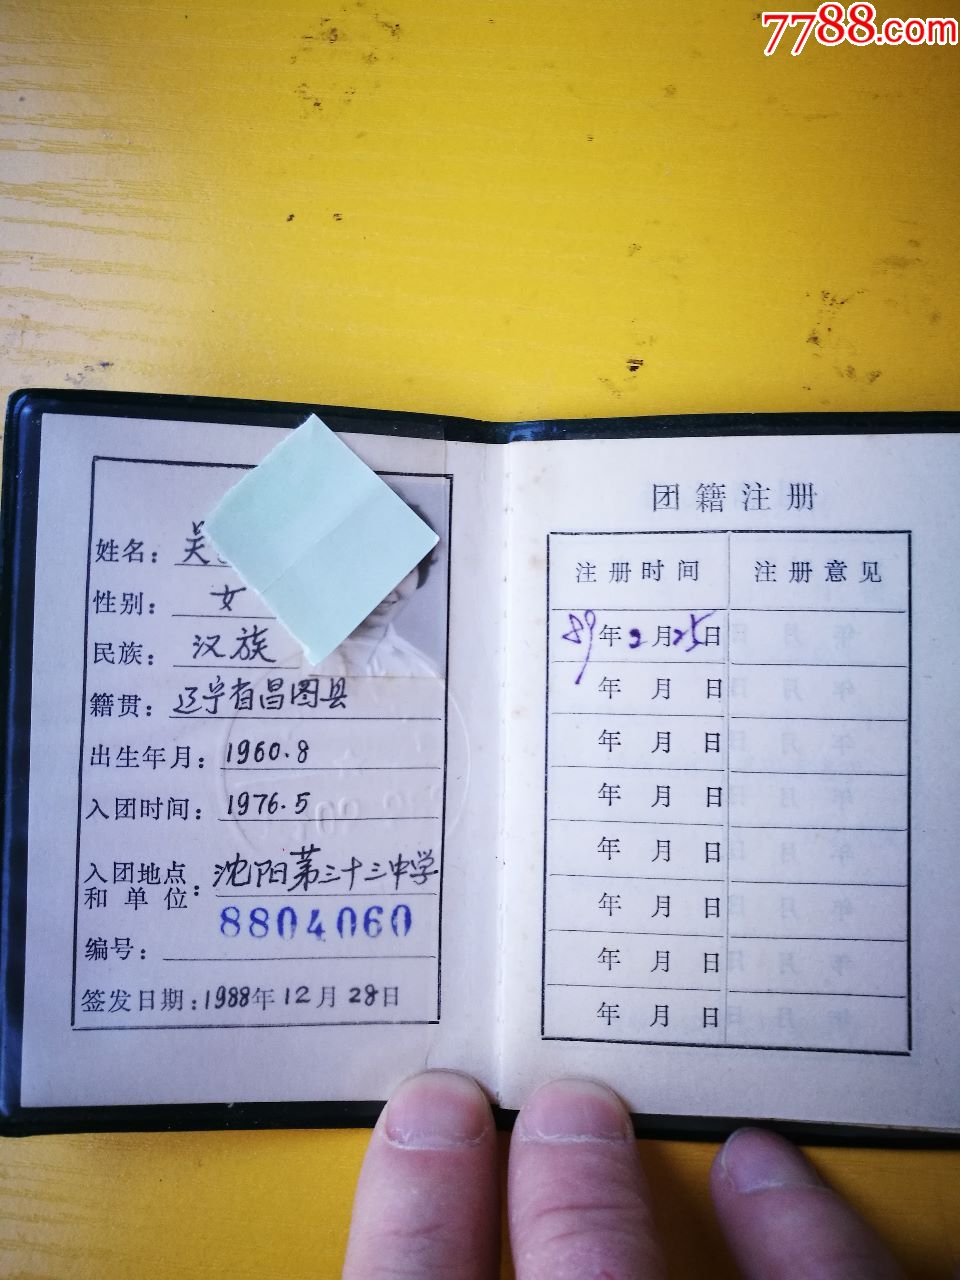 7788.com
姓名：吴
性别：女
民族：汉族
籍贯：辽宁省昌图县
出生年月：1960.8
入团时间：1976.5
入团地点和单位：沈阳第三十三中学
编号：8804060
签发日期：1988年12月28日
团籍注册
注册时间 注册意见
89年2月25日
年 月 日
年 月 日
年 月 日
年 月 日
年 月 日
年 月 日
年 月 日